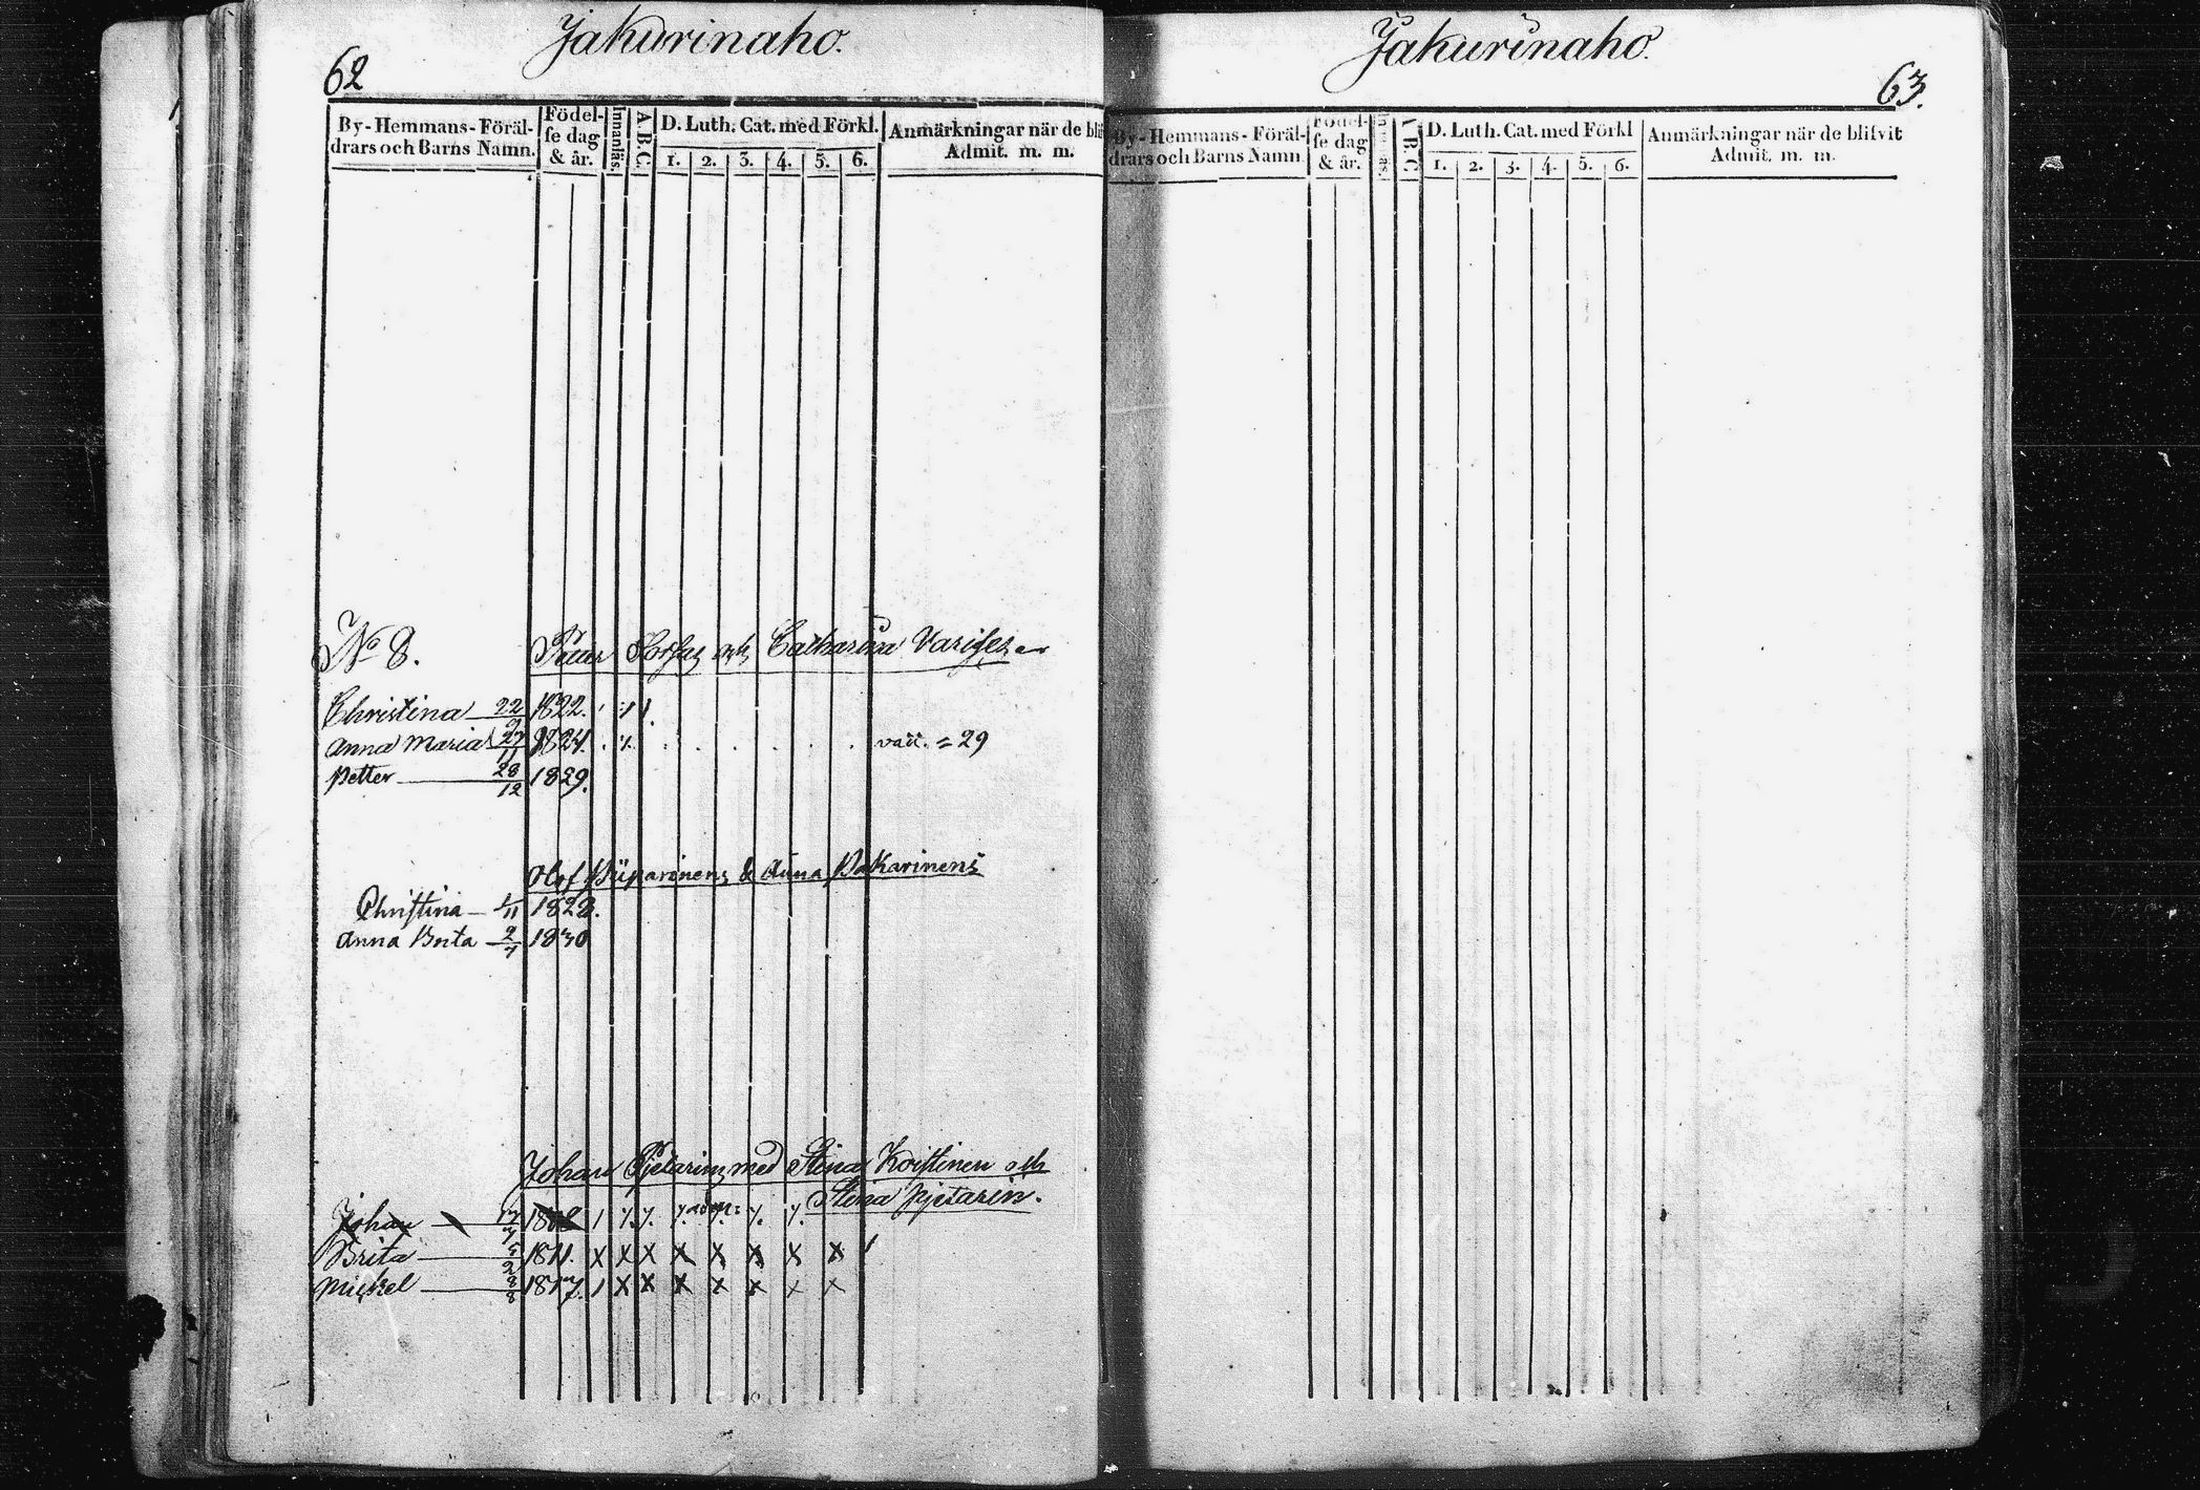 Jakurinaho.
62
By-Hemmans-Föräl-
drars och Barns Namn.
Födel-
se dag
& år.
Innanläs.
A.B.C.
D. Luth. Cat. med Förkl.
1. 2. 3. 4. 5. 6.
Anmärkningar när de bli
Admit. m. m.
No 8.
Petter och Catharina
Christina 22/9 1822.
Anna Maria 27/11 1824. vacc. = 29
Petter 28/12 1829.
Olof & Anna Pakarinens
Christina 1/11 1828.
Anna Brita 2/7 1830
Johan med Stina Koistinen och
Stina Pjetarin.
Johan
Brita 5/2 1811. x x x x x x x x
Mickel 8/8 1817. 1 x x x x x x x
Jakurinaho.
63.
By-Hemmans-Föräl-
drars och Barns Namn
Födel-
se dag
& år.
A.B.C.
D. Luth. Cat. med Förkl
1. 2. 3. 4. 5. 6.
Anmärkningar när de blifvit
Admit. m. m.